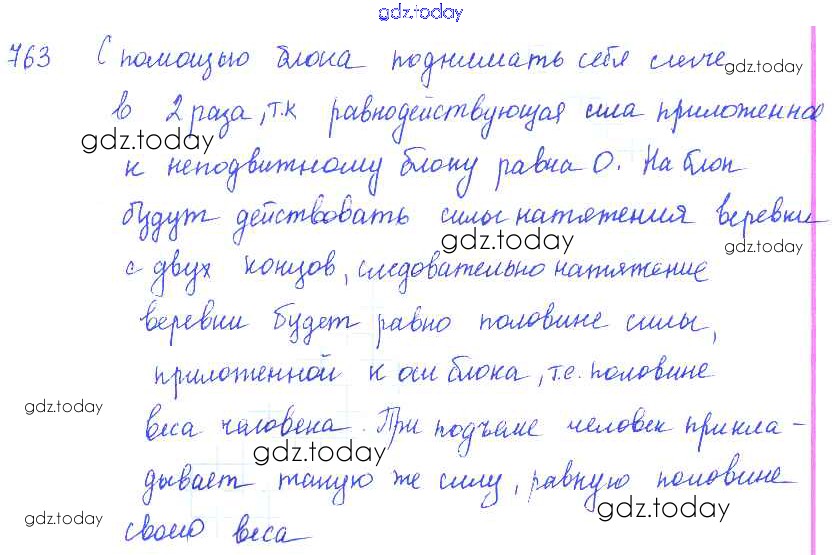 gdz.today
763 С помощью блока поднимать себя легче
gdz.today
в 2 раза, т.к равнодействующая сила приложенная
gdz.today
к неподвижному блоку равна 0. На блок
будут действовать силы натяжения веревки
gdz.today
gdz.today
с двух концов, следовательно натяжение
веревки будет равно половине силы,
приложенной к оси блока, т.е. половине
gdz.today
веса человека. При подъеме человек прикла-
gdz.today
дывает такую же силу, равную половине
gdz.today
gdz.today
своего веса